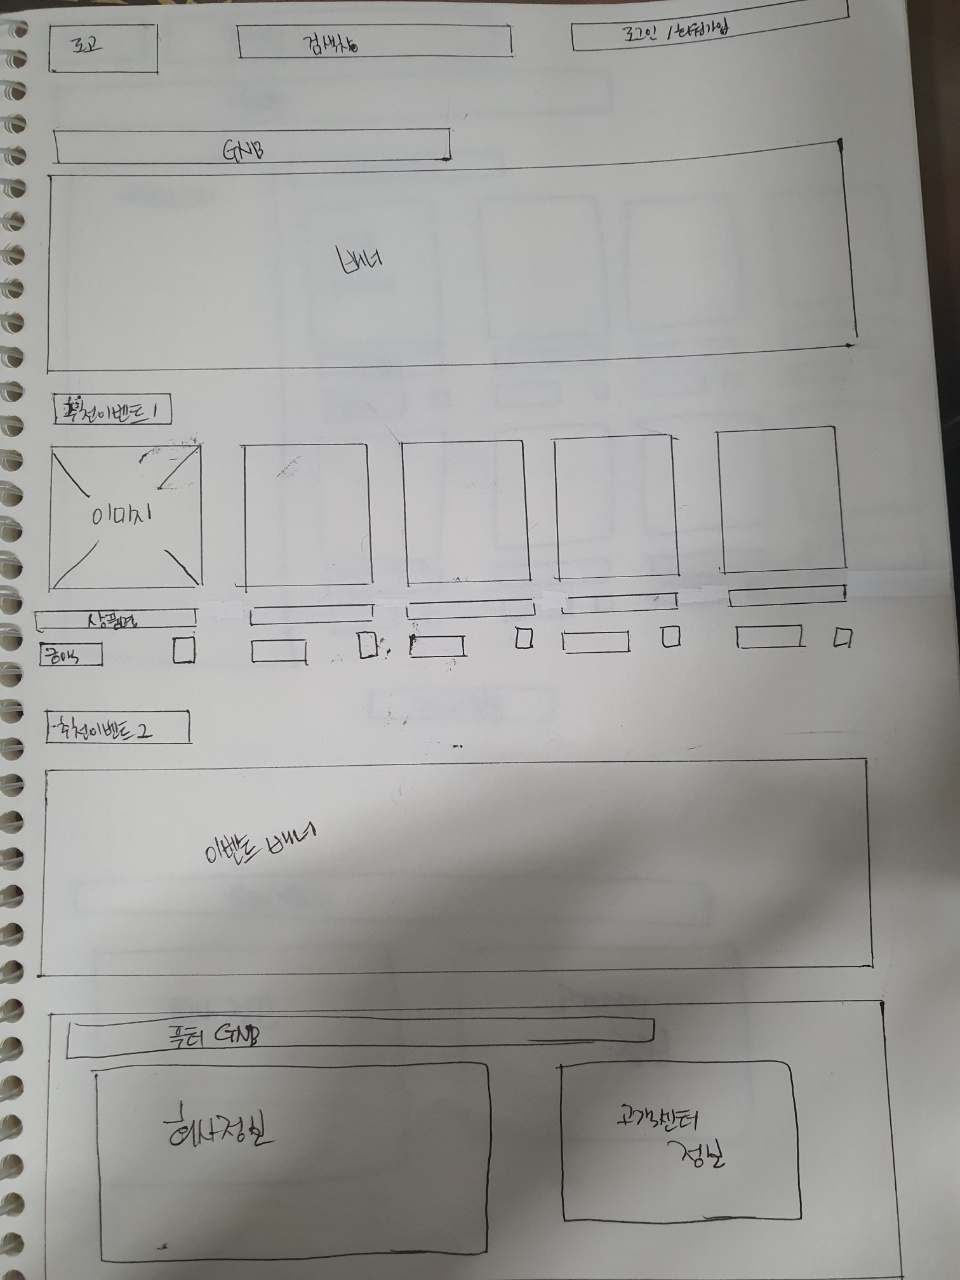 로고
검색창
로그인 / 회원가입
GNB
배너
추천이벤트 1
이미지
상품명
금액
추천이벤트 2
이벤트 배너
푸터 GNB
회사정보
고객센터
정보